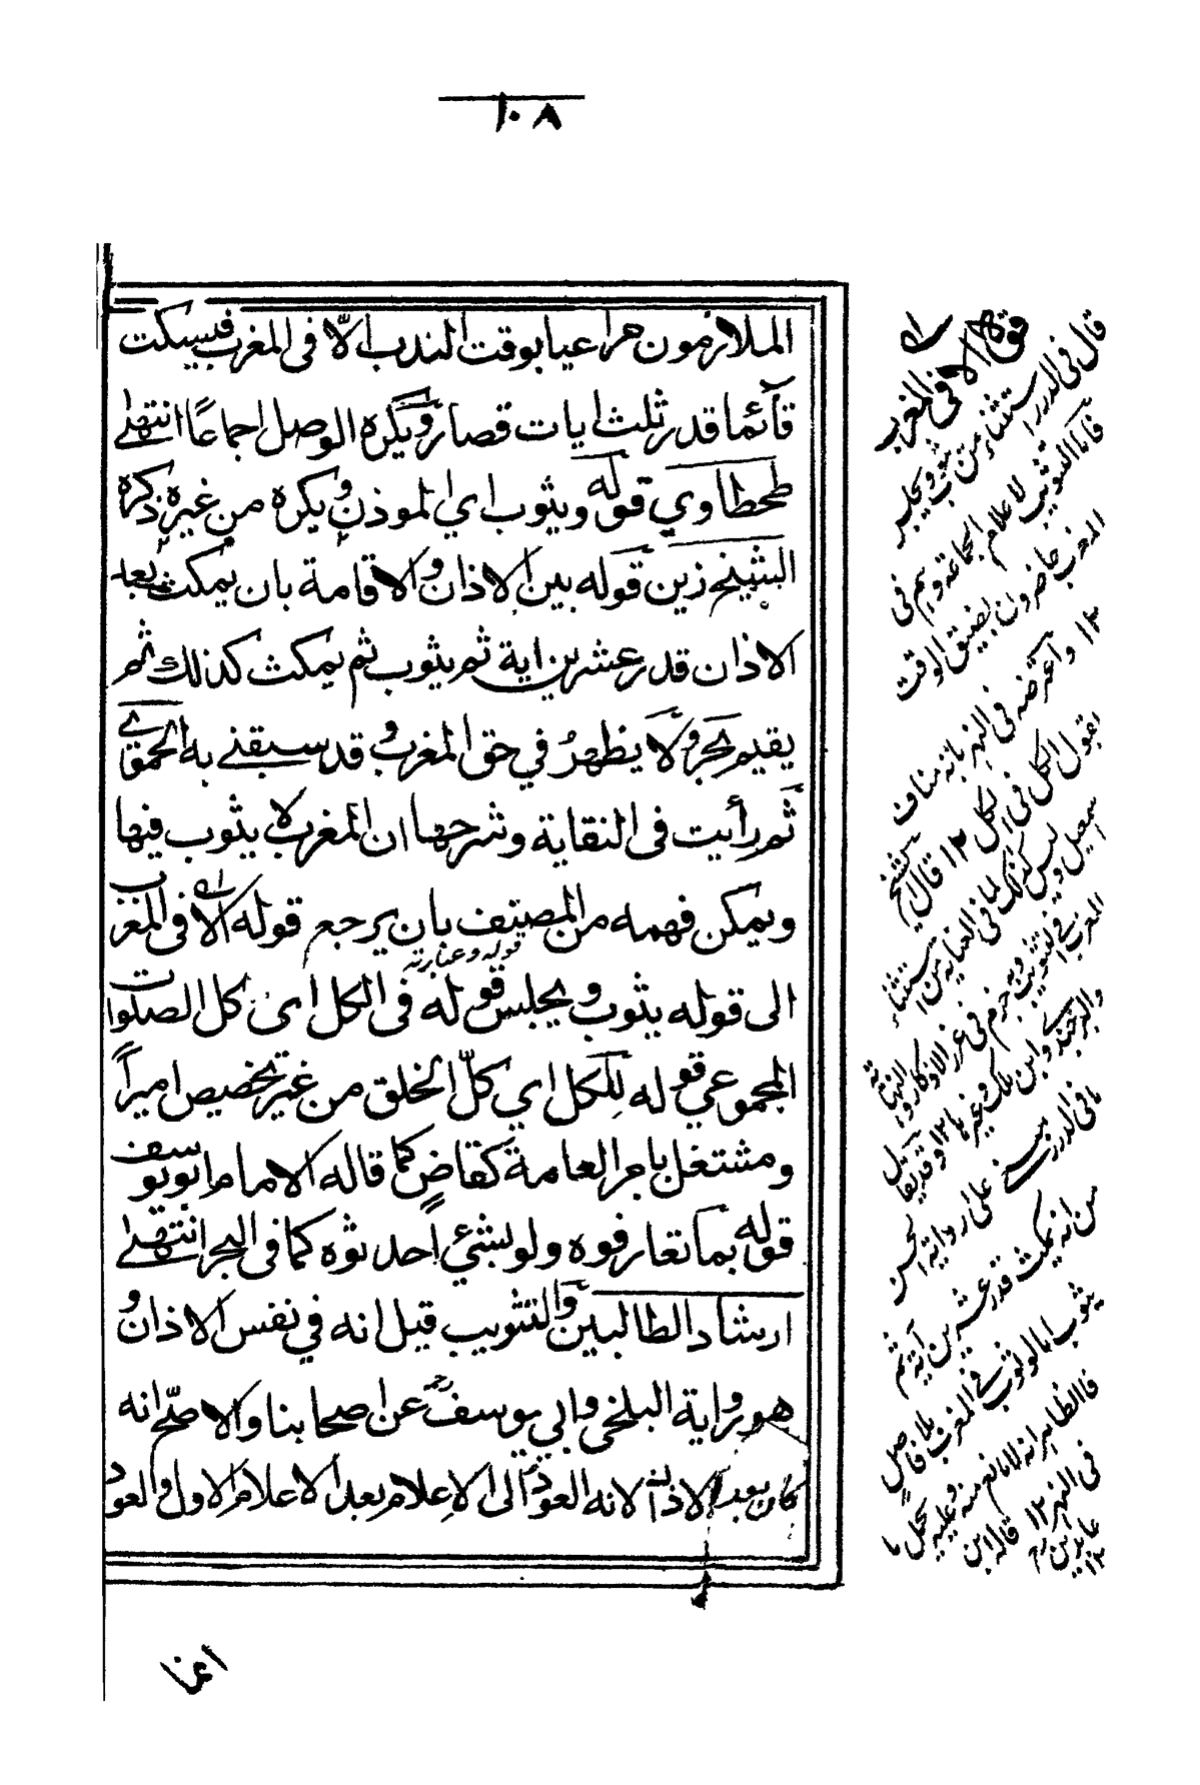 ١٠٨
الملازمون مراعيا بوقت الندب الّا فى المغرب فيسكت
قآئما قدر ثلث ايات قصار ويكره الوصل اجماعًا انتهى
طحطاوي قوله ويثوب اي الموذن ويكره من غيره ذكره
الشيخ زين قوله بين الاذان والاقامة بان يمكث بعد
الاذان قدر عشرين اية ثم يثوب ثم يمكث كذلك ثم
يقيم بحر ولا يظهرُ في حق المغرب وقد سبقنى به الحموى
ثم رأيت فى النقاية وشرحها ان المغرب لا يثوب فيها
ويمكن فهمه من المصنف بان يرجع قوله الا فى المغرب
الى قوله يثوب ويجلس قوله فى الكل اى كل الصلوات
المجموعي قوله للكل اي كلّ الخلق من غير تخصيص اميراً
ومشتغل بامر العامة كقاضٍ كما قاله الامام ابو يوسف
قوله بما تعارفوه ولو بشئ احدثوه كما فى البحر انتهى
ارشاد الطالبين والتثويب قيل انه في نفس الاذان و
هو رواية البلخى وابي يوسف عن اصحابنا والاصحّ انه
كان بعد الاذان لانه العود الى الاعلام بعد الاعلام الاول والعود
قوله الا فى المغرب
قال فى الدرر استثناء من يثوب ويجلس
فان التثويب لاعلام الجماعة وهم فى
المغرب حاضرون لضيق الوقت
١٢ واعترضه فى النهر بانه مناف
لقول الكل فى الكل ١٢ قال الشيخ
اسمعيل وليس كذلك لما فى العناية من استثناء
المغرب فى التثويب وبه جزم فى غرر الاذكار والنهاية
والبرجندى وابن ملك وغيرها ١٢
ما فى الدرر
من انه يمكث قدر عشرين آية ثم
يثوب اما لو ثوب فى المغرب بلا فاصل
فالظاهر انه لا مانع منه وعليه يحمل ما
فى النهر ١٢ قاله ابن
عابدين ١٢